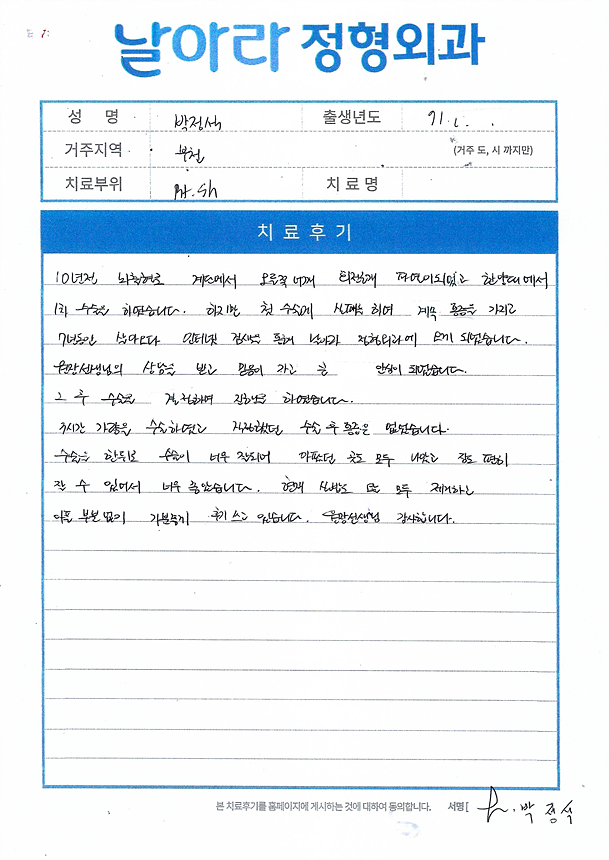 날아라 정형외과
성 명 박정석 출생년도 71.
거주지역 부천 (거주 도, 시 까지만)
치료부위 Sh 치 료 명
치 료 후 기
10년전 뇌출혈로 계단에서 오른쪽 어깨 되었고 한양대에서
1차 수술을 하였습니다. 하지만 첫 수술에 실패 하여 계속 통증을 가지고
7년동안 살아오다 인터넷 검사를 통해 날아라 정형외과에 오게 되었습니다.
원장선생님의 상담을 받고 믿음이 가고 안심이 되었습니다.
그 후 수술을 결정하여 진행을 하였습니다.
3시간 가량을 수술하였고 걱정했던 수술 후 통증은 없었습니다.
수술을 한뒤로 수술이 너무 잘되어 아팠던 곳도 모두 나았고 잠도 편히
잘 수 있어서 너무 좋았습니다. 현재 실밥도 모두 제거하고
아픈 부분 없이 가분좋게 후기 쓰고 있습니다. 원장선생님 감사합니다.
본 치료후기를 홈페이지에 게시하는 것에 대하여 동의합니다. 서명 [ 박 정 석